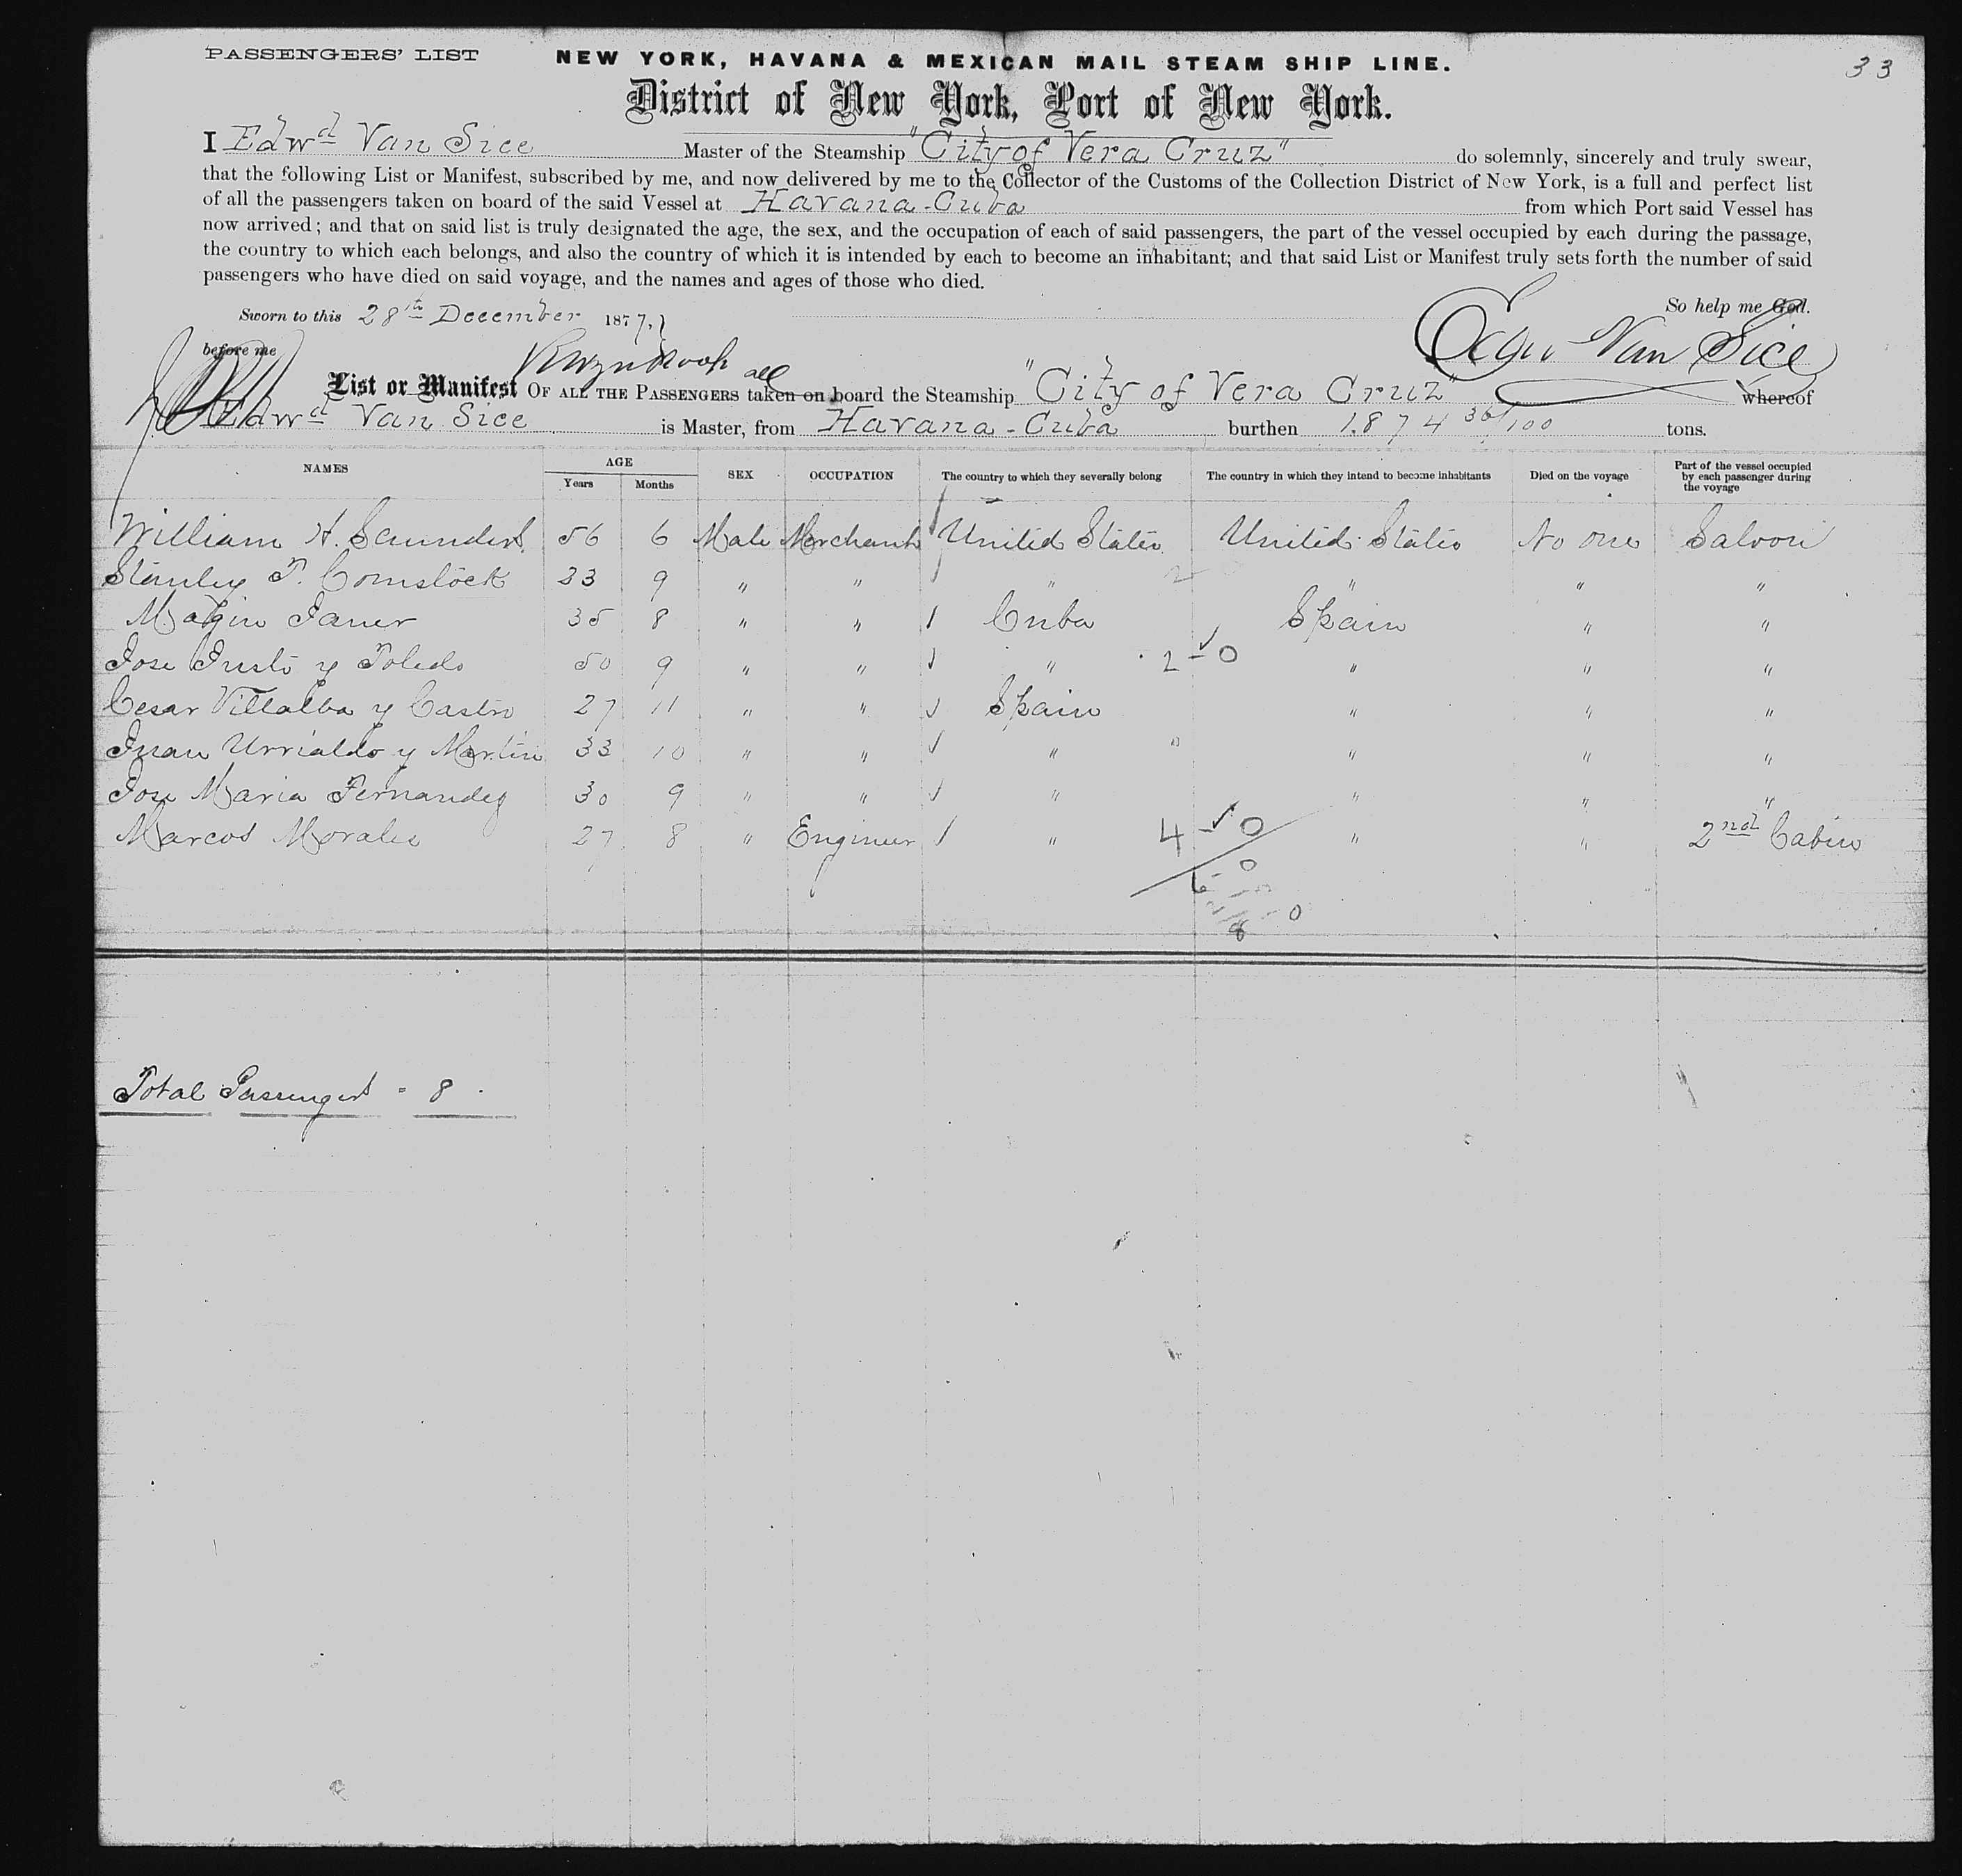 PASSENGERS' LIST NEW YORK, HAVANA & MEXICAN MAIL STEAM SHIP LINE. 33
District of New York, Port of New York.
I Edwd Van Sice Master of the Steamship "City of Vera Cruz" do solemnly, sincerely and truly swear,
that the following List or Manifest, subscribed by me, and now delivered by me to the Collector of the Customs of the Collection District of New York, is a full and perfect list
of all the passengers taken on board of the said Vessel at Havana-Cuba from which Port said Vessel has
now arrived; and that on said list is truly designated the age, the sex, and the occupation of each of said passengers, the part of the vessel occupied by each during the passage,
the country to which each belongs, and also the country of which it is intended by each to become an inhabitant; and that said List or Manifest truly sets forth the number of said
passengers who have died on said voyage, and the names and ages of those who died.
So help me God.
Sworn to this 28th December 1877,
before me Edw Van Sice
List or Manifest OF ALL THE PASSENGERS taken on board the Steamship "City of Vera Cruz" whereof
Edwd Van Sice is Master, from Havana-Cuba burthen 1.874 36/100 tons.
NAMES AGE Years Months SEX OCCUPATION The country to which they severally belong The country in which they intend to become inhabitants Died on the voyage Part of the vessel occupied by each passenger during the voyage
William H. Saunders 56 6 Male Merchant United States United States No one Saloon
Stanley T. Comstock 33 9 " " " " " "
Magin Janer 35 8 " " Cuba Spain " "
Jose Justo y Toledo 50 9 " " " 2-0 " " "
Cesar Villalba y Castro 27 11 " " Spain " " "
Juan Urrialdo y Martin 33 10 " " " " " "
Jose Maria Fernandez 30 9 " " " " " "
Marcos Morales 27 8 " Engineer " 4-0 " " 2nd Cabin
6-0
8-0
Total Passengers = 8.